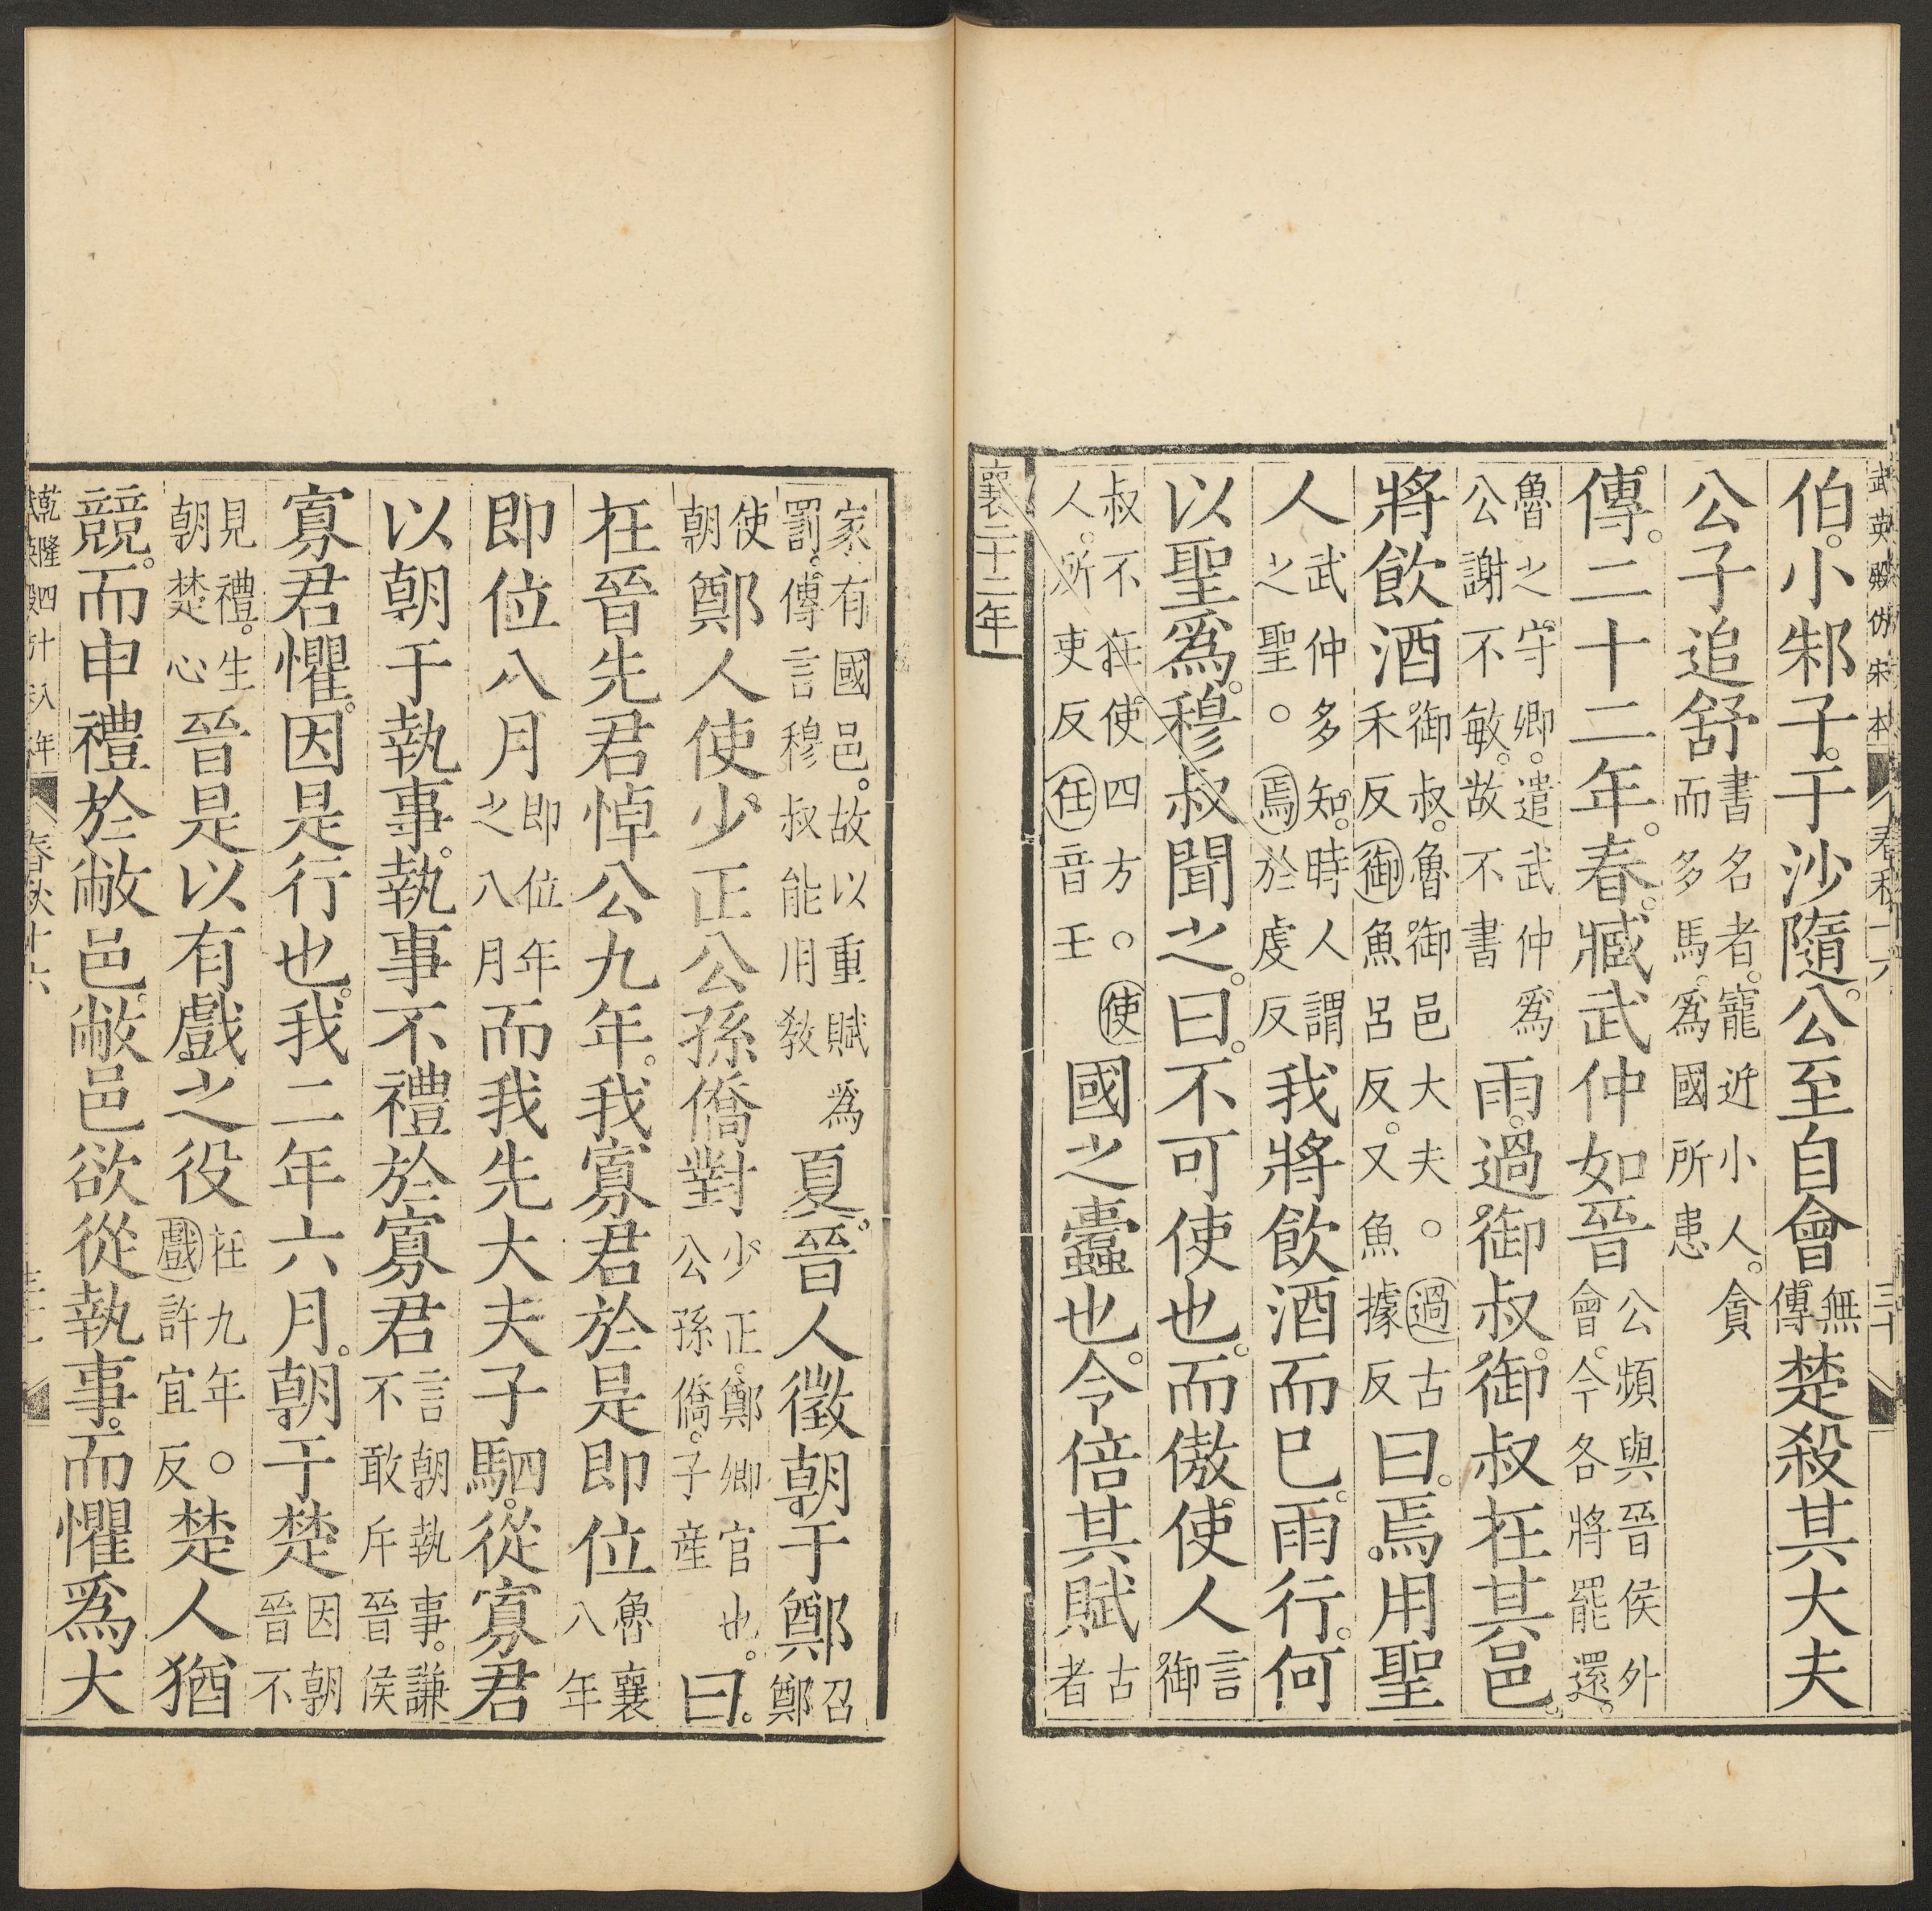 武英殿仿宋本 春秋十六 三十
伯小邾子于沙隨公至自會無傳楚殺其大夫
公子追舒書名者寵近小人貪而多馬爲國所患
傳二十二年春臧武仲如晉公頻與晉侯外會今各將罷還
魯之守卿遣武仲爲公謝不敏故不書雨過御叔御叔在其邑
將飲酒御叔魯御邑大夫○過古禾反御魚呂反又魚據反曰焉用聖
人武仲多知時人謂之聖○焉於虔反我將飲酒而巳雨行何
以聖爲穆叔聞之曰不可使也而傲使人言御
叔不任使四方○使人所吏反任音壬國之蠹也令倍其賦古者
襄二十二年
家有國邑故以重賦爲罰傳言穆叔能用敎夏晉人徵朝于鄭召鄭
使朝鄭人使少正公孫僑對少正鄭卿官也公孫僑子産曰
在晉先君悼公九年我寡君於是即位魯襄八年
即位八月即位年之八月而我先大夫子駟從寡君
以朝于執事執事不禮於寡君言朝執事謙不敢斥晉侯
寡君懼因是行也我二年六月朝于楚因朝晉不
見禮生朝楚心晉是以有戲之役在九年○戲許宜反楚人猶
競而申禮於敝邑敝邑欲從執事而懼爲大
乾隆四十八年 春秋十六